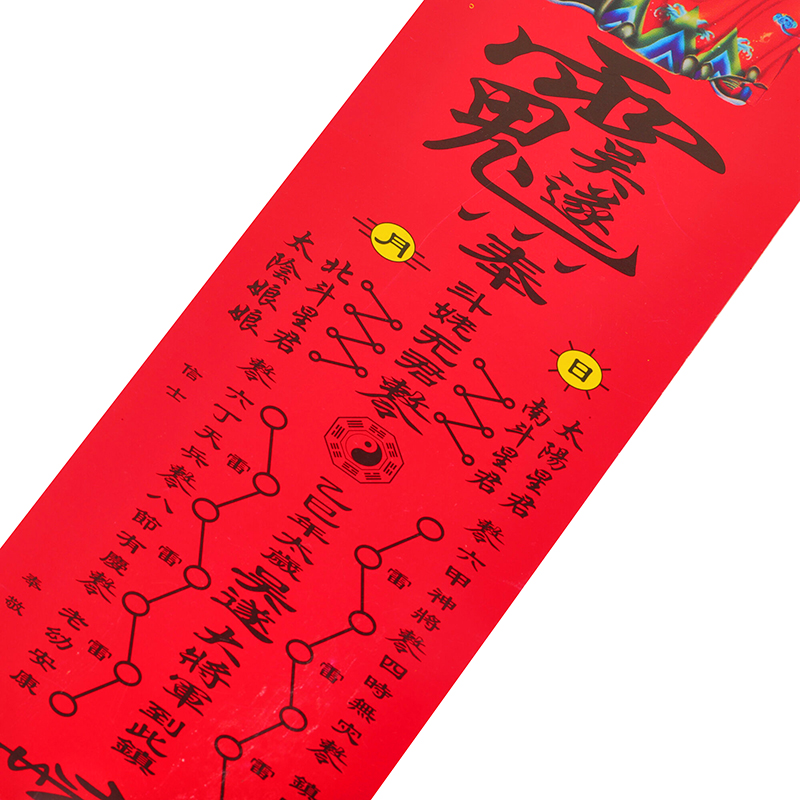 吳遂
奉
斗姥元君
日
太陽星君
南斗星君
月
北斗星君
太陰娘娘
六甲神將
四時無災
鎮
雷
雷
雷
乙巳年太歲吳遂大將軍到此鎮
雷
雷
雷
六丁天兵
八節有慶
老幼安康
信士
奉敬